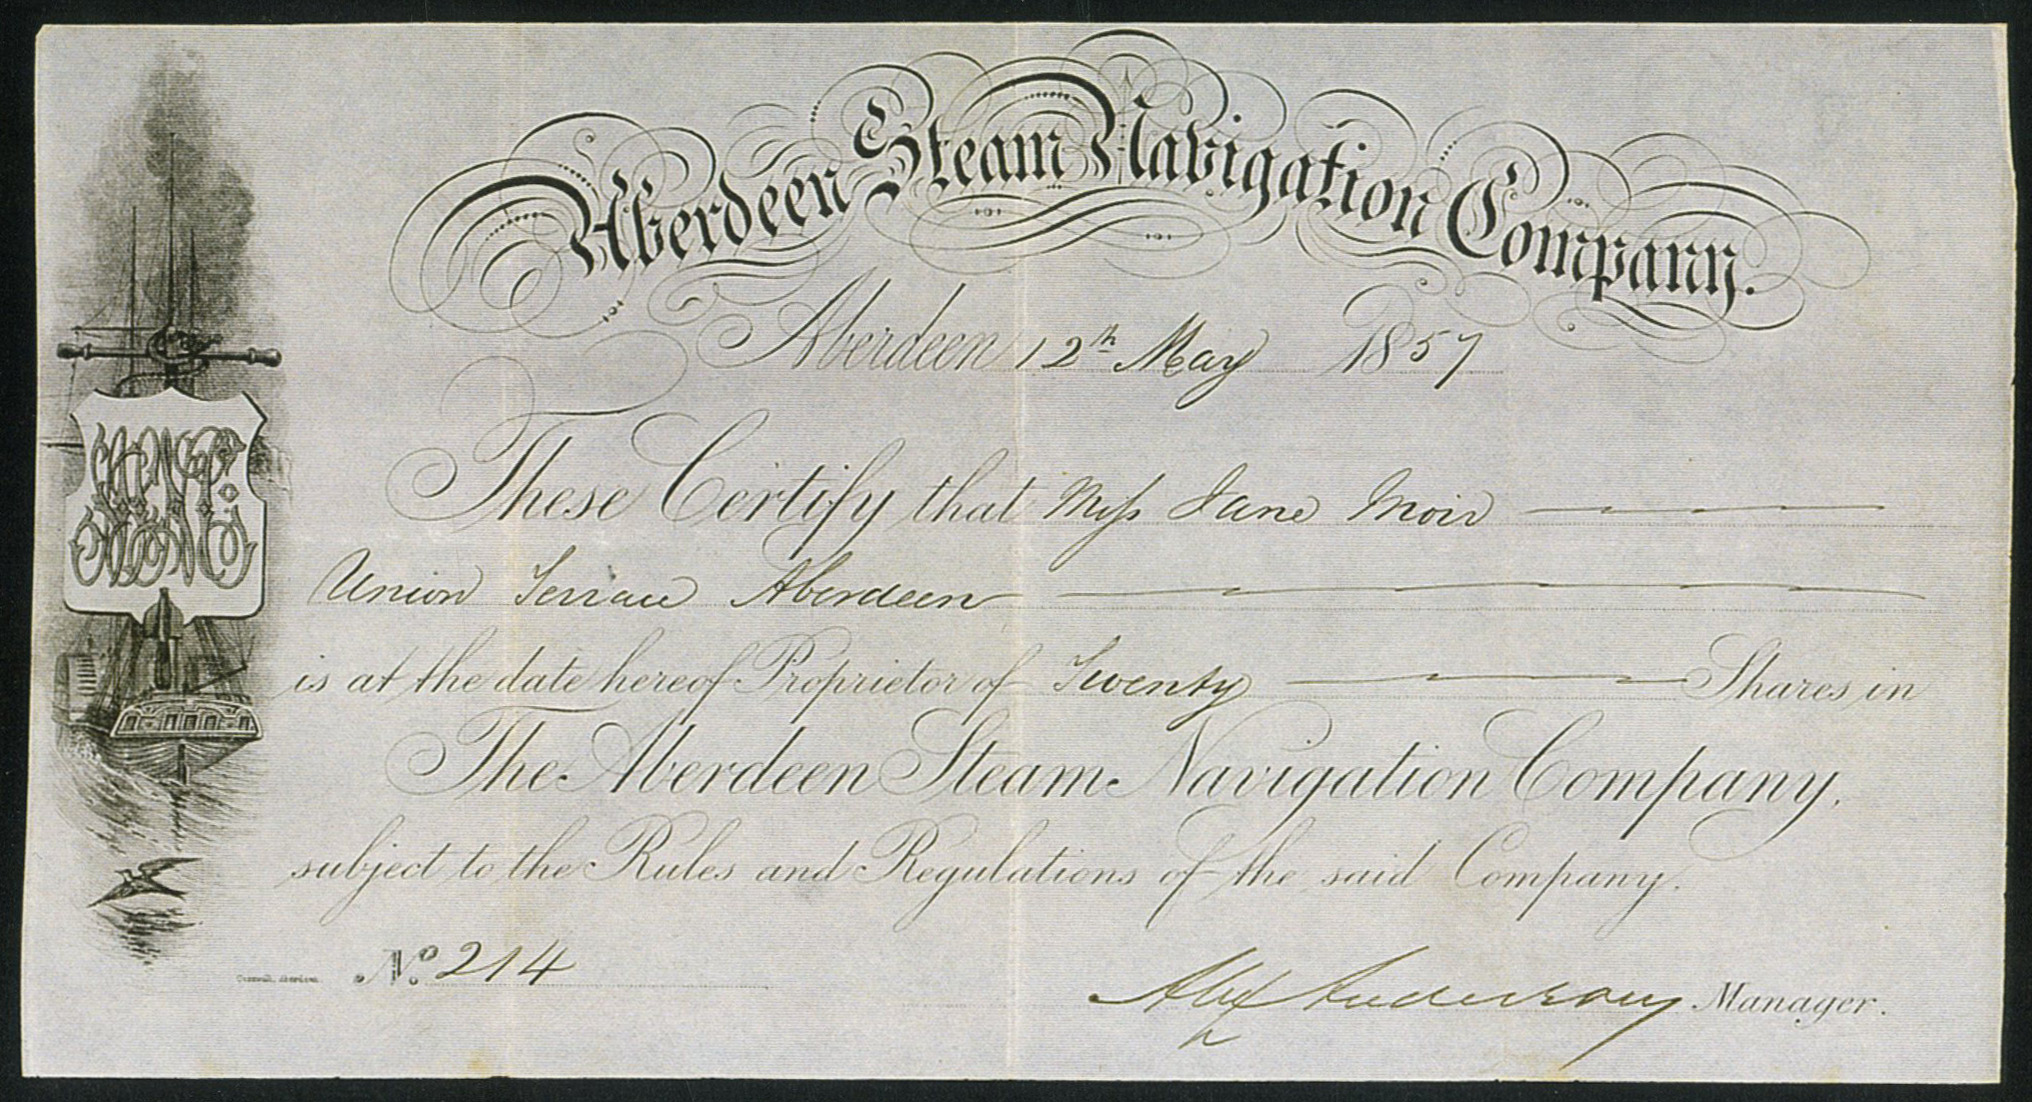 Aberdeen Steam Navigation Company.
Aberdeen 12th May 1857
These Certify that Miss Jane Moir
Union Terrace Aberdeen
is at the date hereof Proprietor of Twenty Shares in
The Aberdeen Steam Navigation Company,
subject to the Rules and Regulations of the said Company.
No. 214
Cornwall, Aberdeen.
Alexr Anderson Manager.